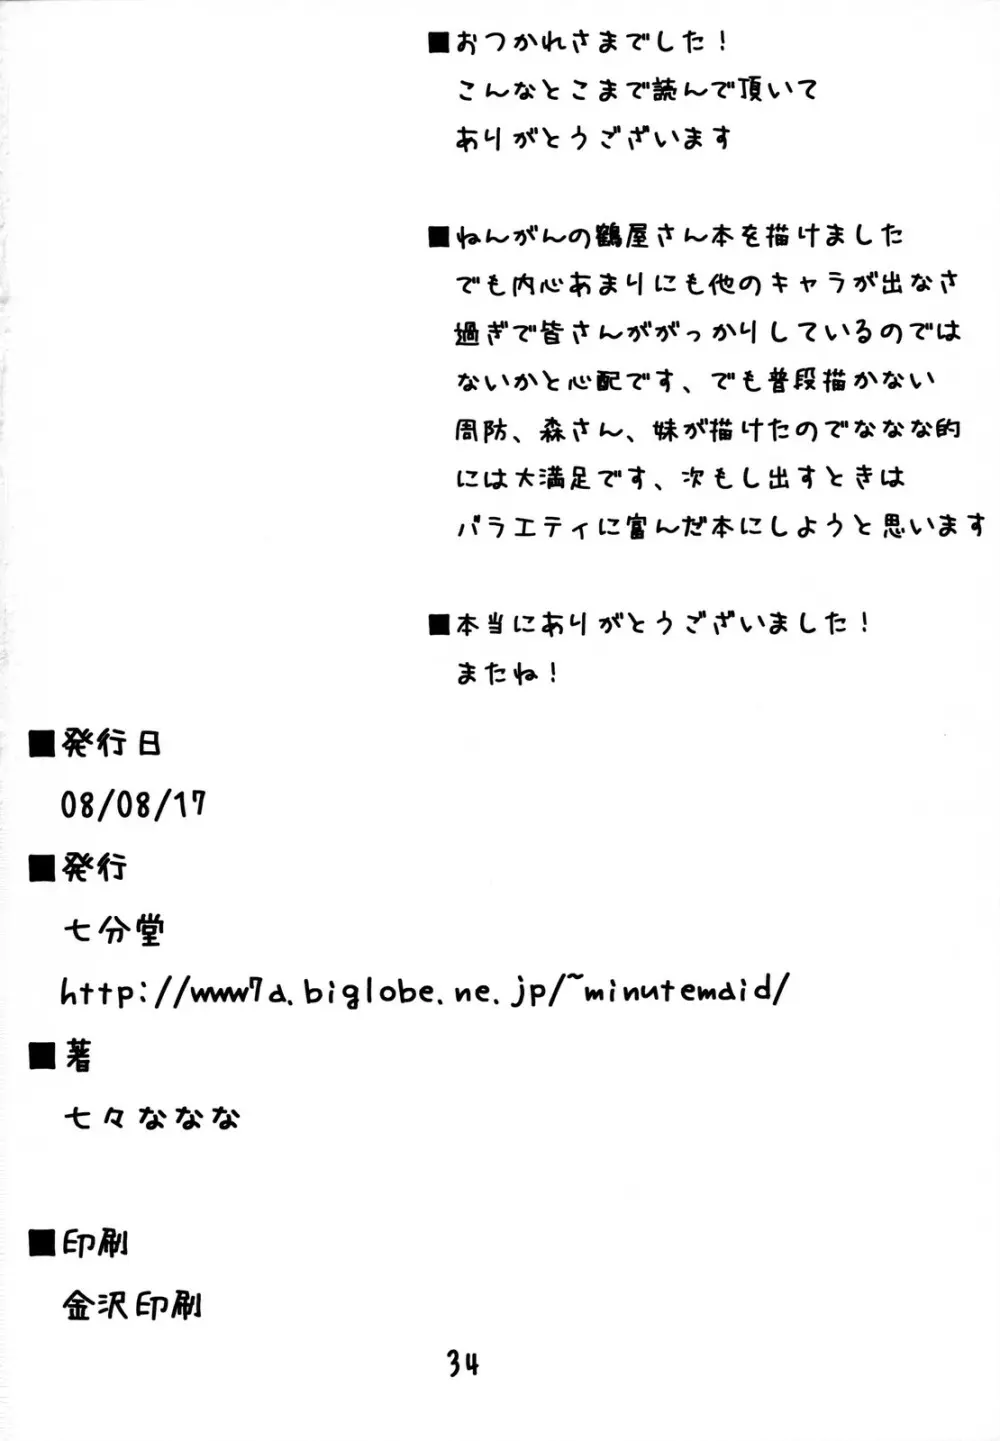 ■おつかれさまでした！
こんなとこまで読んで頂いて
ありがとうございます
■ねんがんの鶴屋さん本を描けました
でも内心あまりにも他のキャラが出なさ
過ぎで皆さんががっかりしているのでは
ないかと心配です、でも普段描かない
周防、森さん、妹が描けたのでななな的
には大満足です、次もし出すときは
バラエティに富んだ本にしようと思います
■本当にありがとうございました！
またね！
■発行日
08/08/17
■発行
七分堂
http://www7a.biglobe.ne.jp/~minutemaid/
■著
七々ななな
■印刷
金沢印刷
34